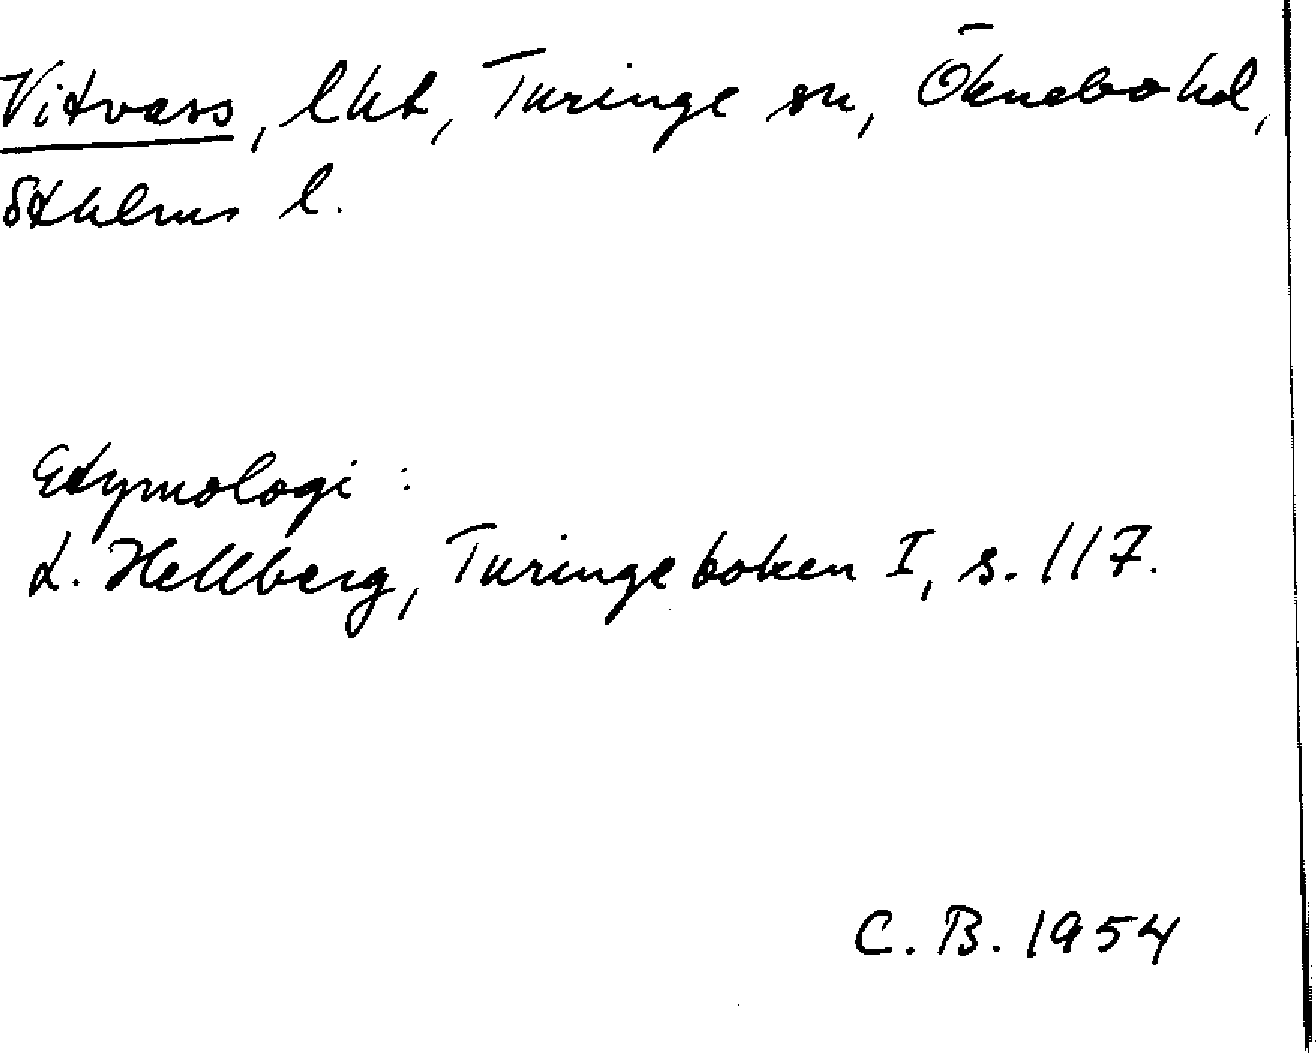 Vitvass, lht, Turinge sn, Öknebo hd,
Sthlms l.
Etymologi:
L. Hellberg, Turingeboken I, s. 117.
C. B. 1954